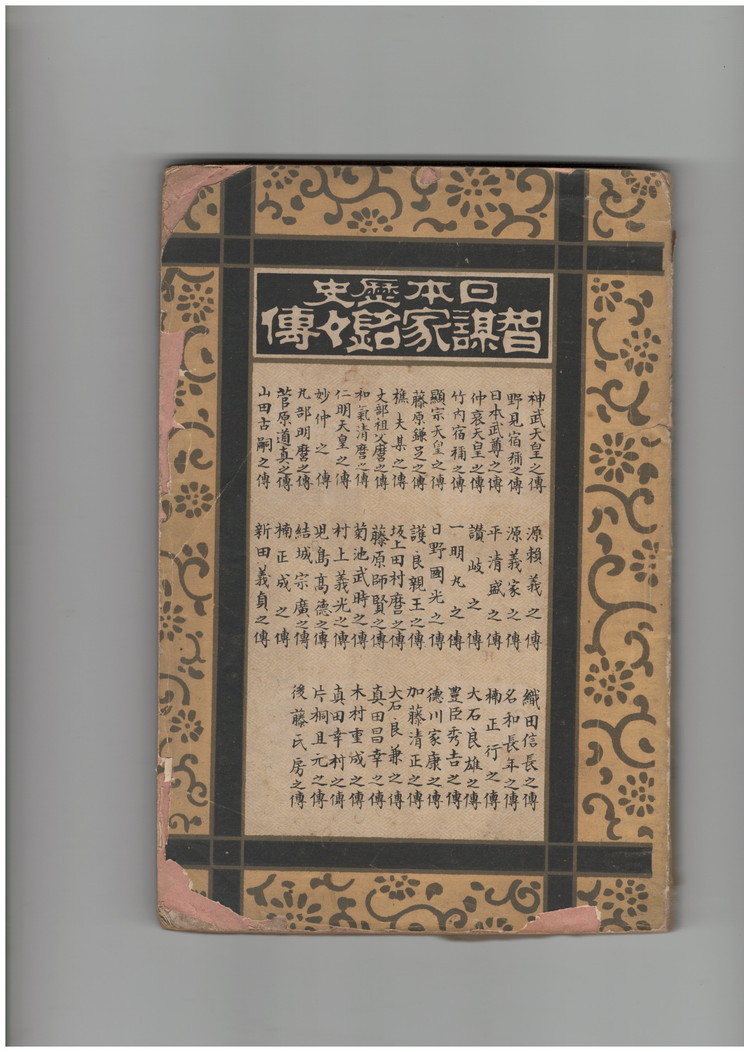 日本歷史
智謀家銘々傳
神武天皇之傳
野見宿祢之傳
日本武尊之傳
仲哀天皇之傳
竹内宿祢之傳
顯宗天皇之傳
藤原鎌足之傳
樵夫某之傳
丈部祖父麿之傳
和氣清麿之傳
仁明天皇之傳
妙仲之傳
丸部明麿之傳
菅原道真之傳
山田古嗣之傳
源賴義之傳
源義家之傳
平清盛之傳
讃岐之傳
一明丸之傳
日野國光之傳
護良親王之傳
坂上田村麿之傳
藤原師賢之傳
菊池武時之傳
村上義光之傳
児島高德之傳
結城宗廣之傳
楠正成之傳
新田義貞之傳
織田信長之傳
名和長年之傳
楠正行之傳
大石良雄之傳
豊臣秀吉之傳
德川家康之傳
加藤清正之傳
大石良兼之傳
真田昌幸之傳
木村重成之傳
真田幸村之傳
片桐且元之傳
後藤氏房之傳